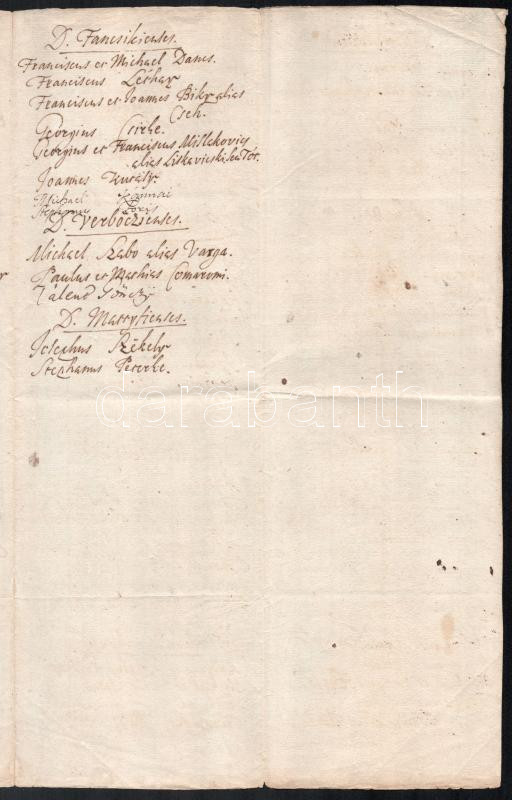 D. Fancsikienses.
Franciscus et Michael Dancs.
Franciscus Lehay
Franciscus et Joannes Biky alias
Cseh.
Georgius Csirke.
Georgius et Franciscus Mislekovics
alias Liskavicski seu Tót.
Joannes Kiraly
Michael
Stephanus
D. Verbőczienses.
Michael Szabo alias Varga.
Paulus et Mathias Comaromi.
Valend Gönczy
D. Mattyfienses.
Josephus Székely
Stephanus Peterke.
darabanth